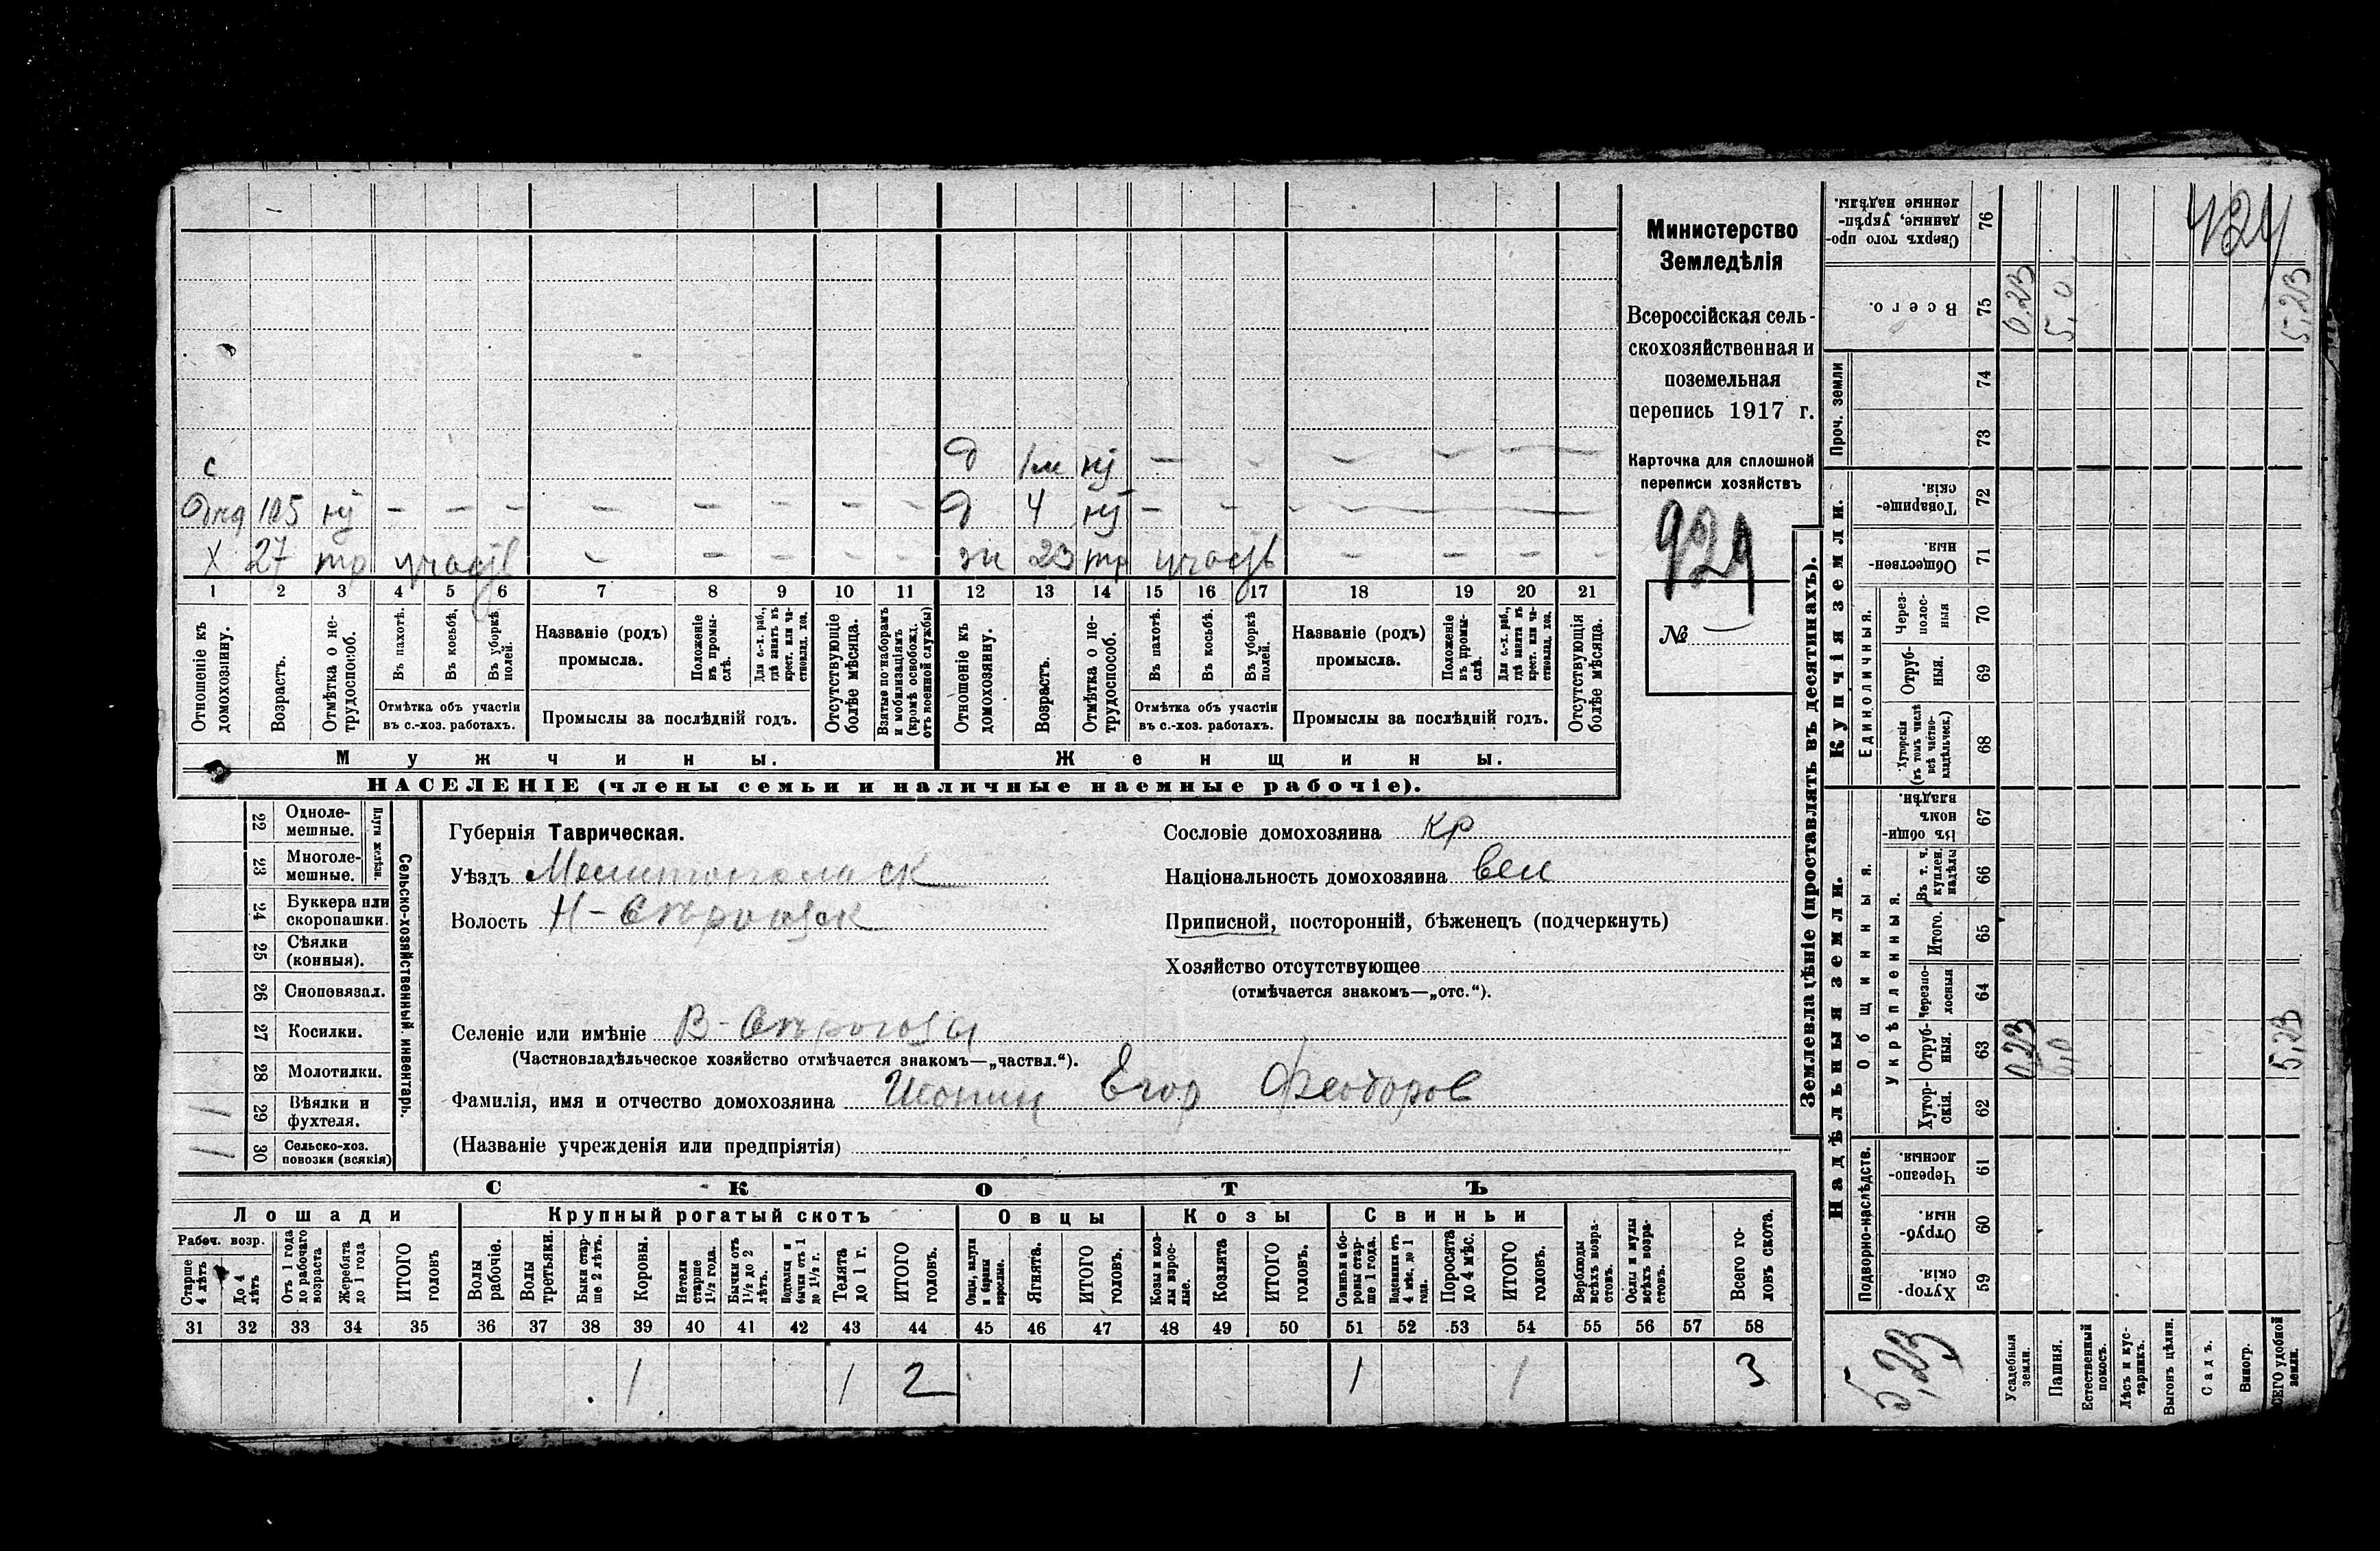 Министерство
Земледѣлія
Всероссійская сель-
скохозяйственная и
поземельная
перепись 1917 г.
Карточка для сплошной
переписи хозяйствъ
929
№
с
д 1м нј
105 нј – – – – – – – – д 4 нј – – – – – –
х 27 тр – – – – – жи 23 тр – – – –
1 2 3 4 5 6 7 8 9 10 11 12 13 14 15 16 17 18 19 20 21
Отношеніе къ домохозяину.
Возрастъ.
Отмѣтка о не-трудоспособ.
Въ пахотѣ.
Въ косьбѣ.
Въ уборкѣ полей.
Отмѣтка объ участіи
въ с.-хоз. работахъ.
Названіе (родъ)
промысла.
Положеніе въ промы-слѣ.
Для с.-х. раб., гдѣ занятъ въ крест. или ча-стновлад. хоз.
Промыслы за послѣдній годъ.
Отсутствующіе болѣе мѣсяца.
Взятые по наборамъ и мобилизаціямъ (кромѣ освобожд. отъ военной службы)
Отношеніе къ домохозяину.
Возрастъ.
Отмѣтка о не-трудоспособ.
Въ пахотѣ.
Въ косьбѣ.
Въ уборкѣ полей.
Отмѣтка объ участіи
въ с.-хоз. работахъ.
Названіе (родъ)
промысла.
Положеніе въ промы-слѣ.
Для с.-х. раб., гдѣ занята въ крест. или ча-стновлад. хоз.
Промыслы за послѣдній годъ.
Отсутствующія болѣе мѣсяца.
Мужчины.
Женщины.
НАСЕЛЕНІЕ (члены семьи и наличные наемные рабочіе).
Сельско-хозяйственный инвентарь.
Плуги желѣзн.
22 Одноле-мешные.
23 Многоле-мешные.
24 Буккера или скоропашки.
25 Сѣялки (конныя).
26 Сноповязал.
27 Косилки.
28 Молотилки.
29 Вѣялки и фухтеля. 1
30 Сельско-хоз. повозки (всякія) 1
Губернія Таврическая.
Уѣздъ Мелитопольск
Волость Н-Сѣрогозск
Селеніе или имѣніе В-Сѣрогозы
(Частновладѣльческое хозяйство отмѣчается знакомъ—„частвл.“).
Фамилія, имя и отчество домохозяина Егор Феодоров
(Названіе учрежденія или предпріятія)
Сословіе домохозяина кр
Національность домохозяина вел
Приписной, посторонній, бѣженецъ (подчеркнуть)
Хозяйство отсутствующее
(отмѣчается знакомъ—„отс.“).
СКОТЪ
Лошади
Крупный рогатый скотъ
Овцы
Козы
Свиньи
Рабоч. возр.
Старше 4 лѣтъ
До 4 лѣтъ
Отъ 1 года до рабочаго возраста
Жеребята до 1 года
ИТОГО головъ
Волы рабочіе.
Волы третьяки.
Быки стар-ше 2 лѣтъ.
Коровы.
Нетели старше 1½ года.
Бычки отъ 1½ до 2 лѣтъ.
Подтелки и бычки отъ 1 до 1½ г.
Телята до 1 г.
ИТОГО головъ.
Овцы, валухи и бараны взрослые.
Ягнята.
ИТОГО головъ.
Козы и коз-лы взрос-лые.
Козлята
ИТОГО головъ.
Свиньи и бо-ровы стар-ше 1 года.
Подсвинки отъ 4 мѣс. до 1 года.
Поросята до 4 мѣс.
ИТОГО головъ.
Верблюды всѣхъ возра-стовъ.
Ослы и мулы всѣхъ возра-стовъ.
Всего го-ловъ скота.
31 32 33 34 35 36 37 38 39 40 41 42 43 44 45 46 47 48 49 50 51 52 53 54 55 56 57 58
1 1 2 1 1 3
Землевладѣніе (проставлять въ десятинахъ).
Надѣльныя земли.
Купчія земли.
Проч. земли
Подворно-наслѣдств.
Общинныя.
Укрѣпленныя.
Единоличныя.
Хутор-скія. 59
Отруб-ныя. 60
Черезпо-лосныя 61
Хутор-скія. 62
Отруб-ныя. 63
Черезпо-лосныя 64
Итого. 65
Въ т. ч. куплен. надѣлы 66
Въ общи-номъ владѣн. 67
Хуторскія (въ томъ числѣ всѣ частно-владѣльческ.) 68
Отруб-ныя. 69
Через-полос-ныя 70
Обществен-ныя. 71
Товарище-скія. 72
73
74
Всего. 75
Сверхъ того про-данные, укрѣп-ленные надѣлы. 76
Усадебныя земли. 0,23 0,23
Пашня. 5,0 5,0
Естественный покосъ.
Лѣсъ и кус-тарникъ.
Выгонъ цѣлин.
Садъ.
Виногр.
ВСЕГО удобной земли. 5,23 5,23
5,23
424